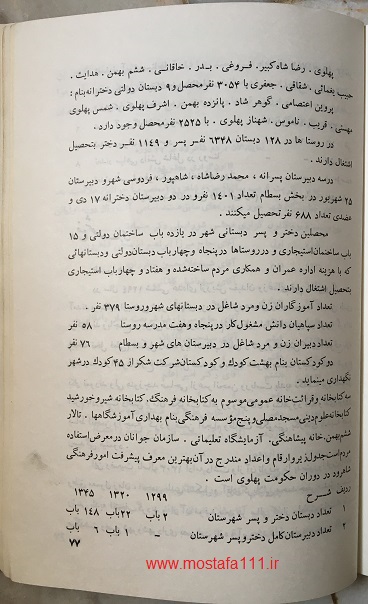 پهلوی . رضا شاه کبیر . فروغی . بدر . خاقانی . ششم بهمن . هدایت .
حبیب یغمائی . شقاقی . جعفری با ۳۰۵۴ نفر محصل و ۹ دبستان دولتی دخترانه بنام :
پروین اعتصامی . گوهر شاد . پانزده بهمن . اشرف پهلوی . شمس پهلوی
مهستی . قریب . ناموس . شهناز پهلوی . با ۲۵۲۵ نفر محصل وجود دارد .
در روستا ها در ۱۲۸ دبستان ۶۳۴۸ نفر پسر و ۱۱۴۹ نفر دختر بتحصیل
اشتغال دارند .
در سه دبیرستان پسرانه ، محمد رضا شاه ، شاهپور ، فردوسی شهر و دبیرستان
۲۵ شهریور در بخش بسطام تعداد ۱۴۰۱ نفر و در دو دبیرستان دخترانه ۱۷ دی و
عضدی تعداد ۶۸۸ نفر تحصیل میکنند .
محصلین دختر و پسر دبستانی شهر در یازده باب ساختمان دولتی و ۱۵
باب ساختمان استیجاری و در روستاها در پنجاه و چهار باب دبستان دولتی و دبستانهائی
که با هزینه اداره عمران و همکاری مردم ساخته شده و هفتاد و چهار باب استیجاری
بتحصیل اشتغال دارند .
تعداد آموزگاران زن و مرد شاغل در دبستانهای شهر و روستا ۳۷۹ نفر .
تعداد سپاهیان دانش مشغول کار در پنجاه و هفت مدرسه روستا ۵۸ نفر
تعداد دبیران زن و مرد شاغل در دبیرستان های شهر و بسطام ۷۶ نفر
دو کودکستان بنام بهشت کودک و کودکستان شرکت شکر از ۴۵ کودک در شهر
نگهداری مینماید .
سه کتابخانه و قرائت خانه عمومی موسوم به کتابخانه فرهنگ . کتابخانه شیر و خورشید
کتابخانه علوم دینی مسجد مصلی و پنج مؤسسه فرهنگی بنام بهداری آموزشگاهها . تالار
ششم بهمن . خانه پیشاهنگی . آزمایشگاه تعلیماتی . سازمان جوانان در معرض استفاده
مردم است جدول زیر و ارقام و اعداد مندرج در آن بهترین معرف پیشرفت امور فرهنگی
شاهرود در دوران حکومت پهلوی است .
ردیف شرح ۱۲۹۹ ۱۳۲۰ ۱۳۴۵
۱ تعداد دبستان دختر و پسر شهرستان ۲ باب ۲۲ باب ۱۴۸ باب
۲ تعداد دبیرستان کامل دختر و پسر شهرستان – ۱ باب ۶ باب
۷۷
www.mostafa111.ir